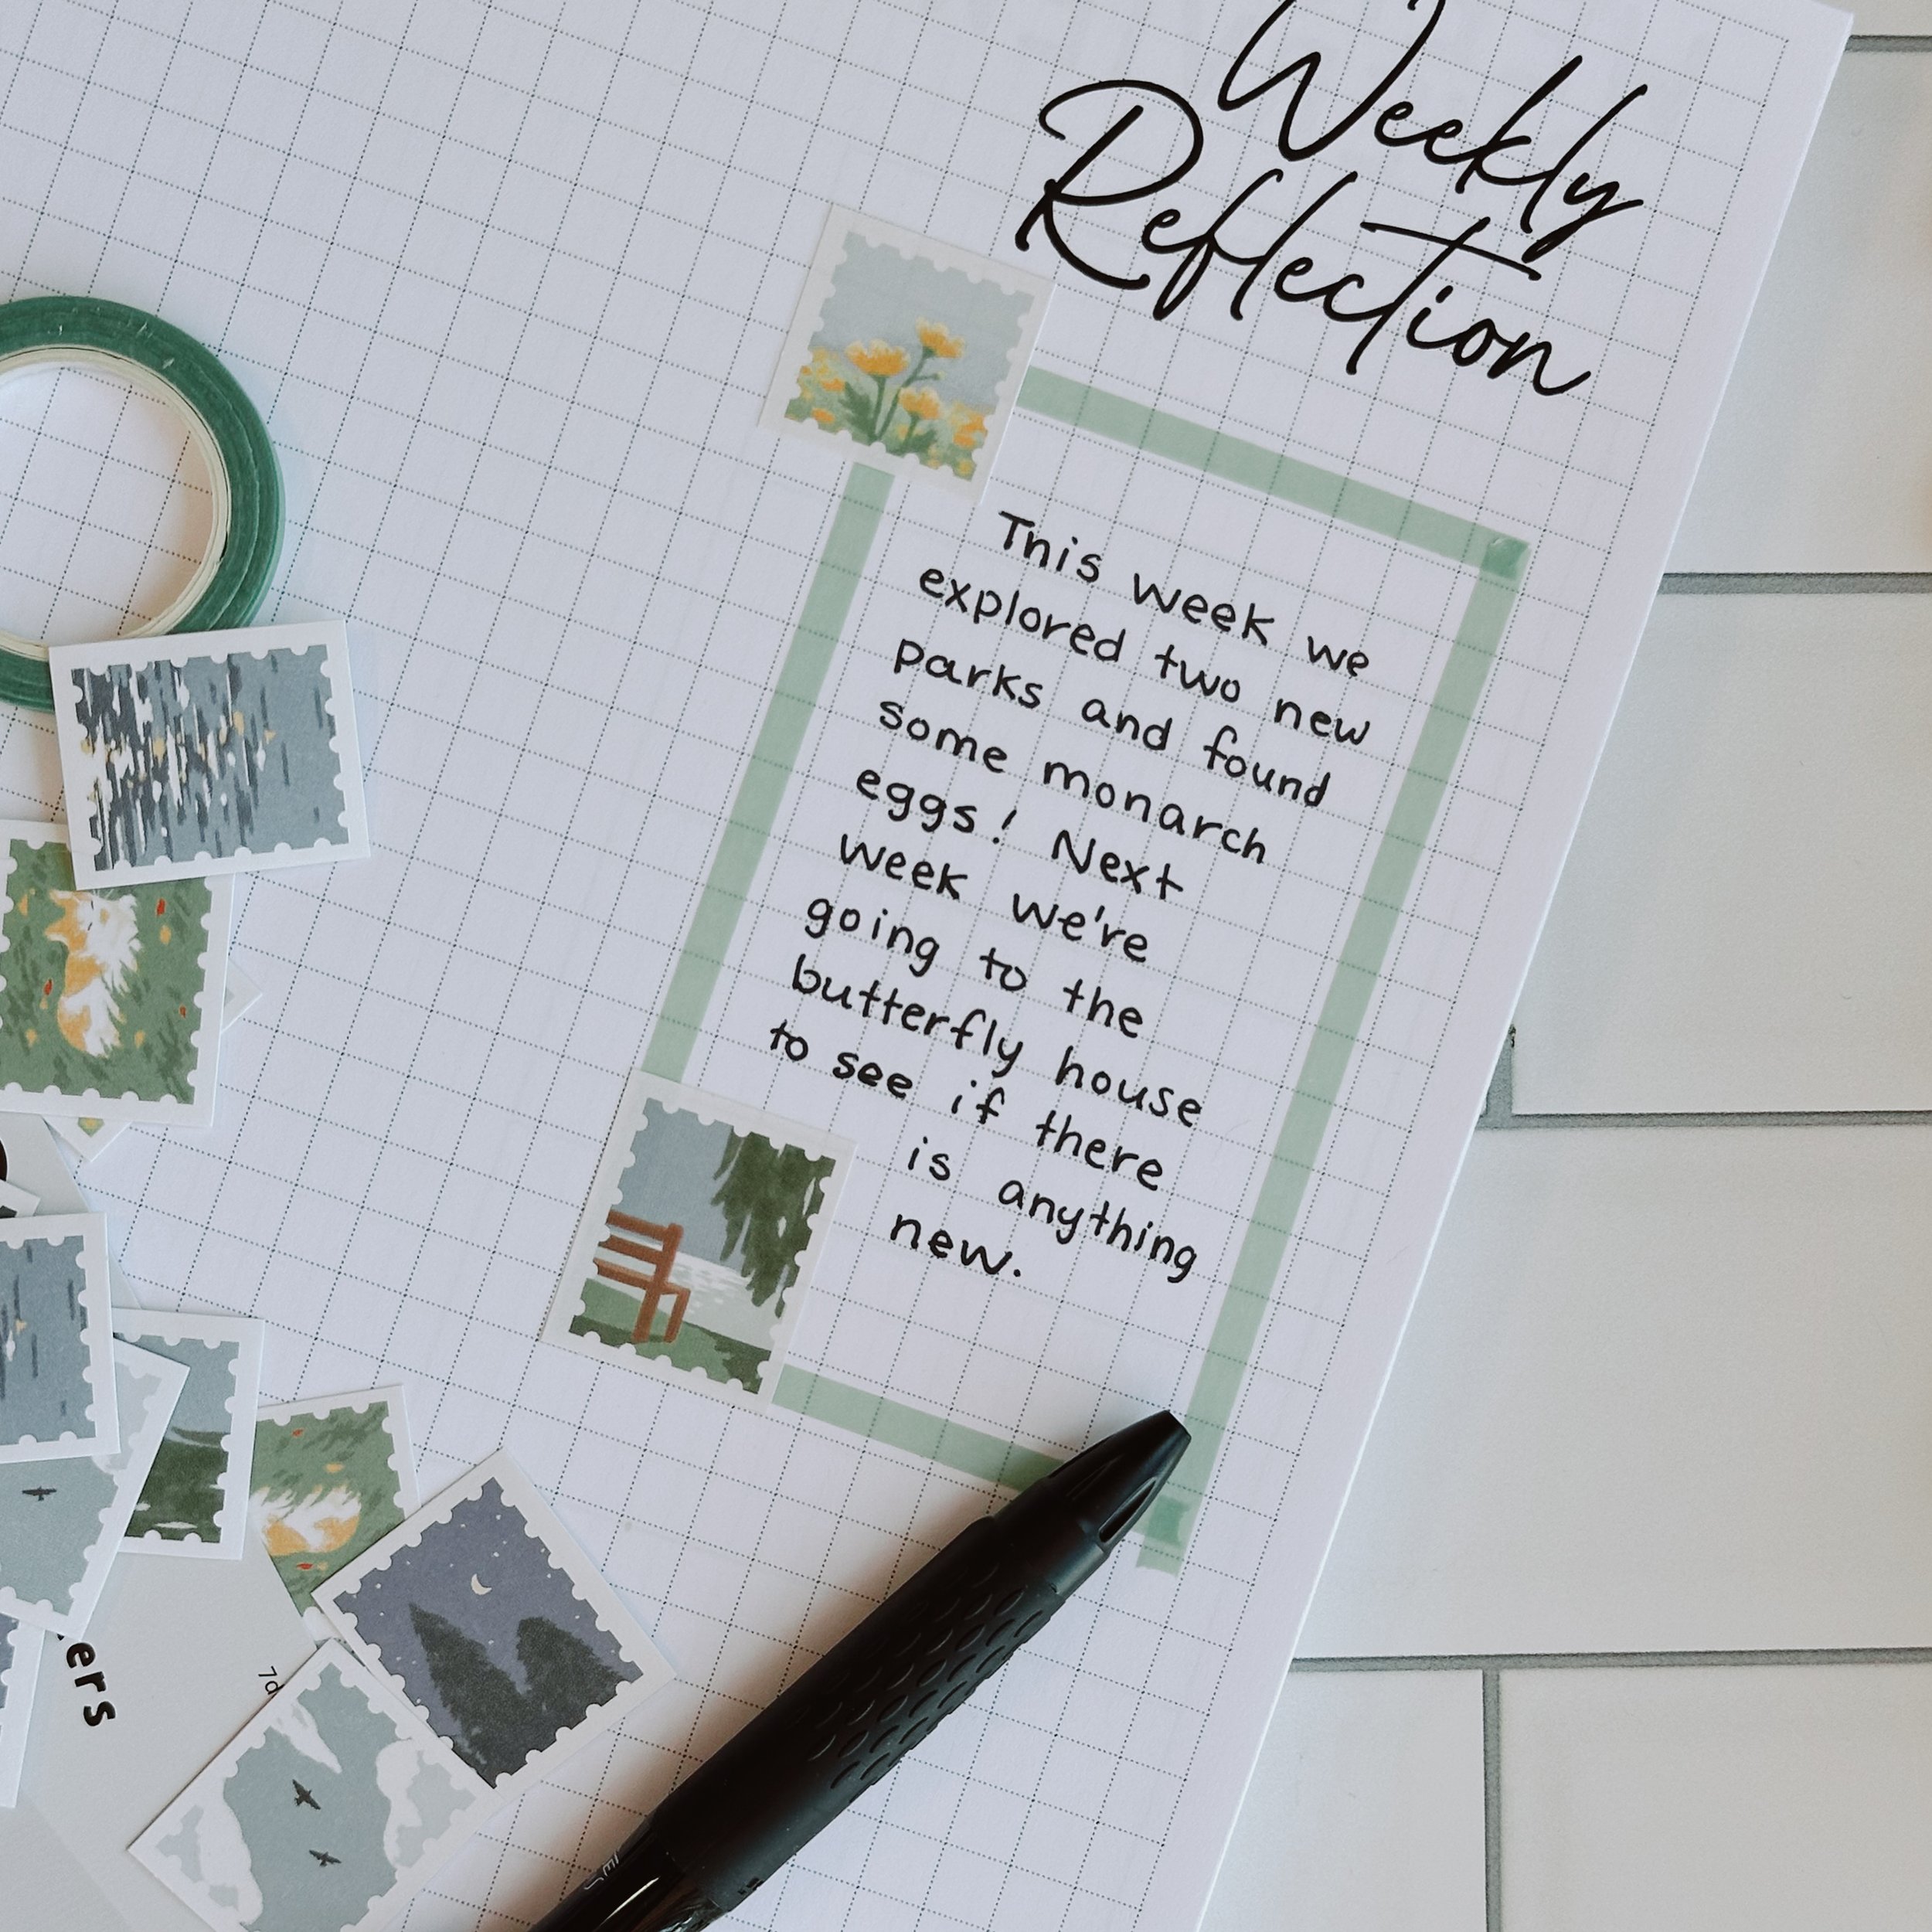 Weekly
Reflection
This week we
explored two new
parks and found
some monarch
eggs! Next
week we're
going to the
butterfly house
to see if there
is anything
new.